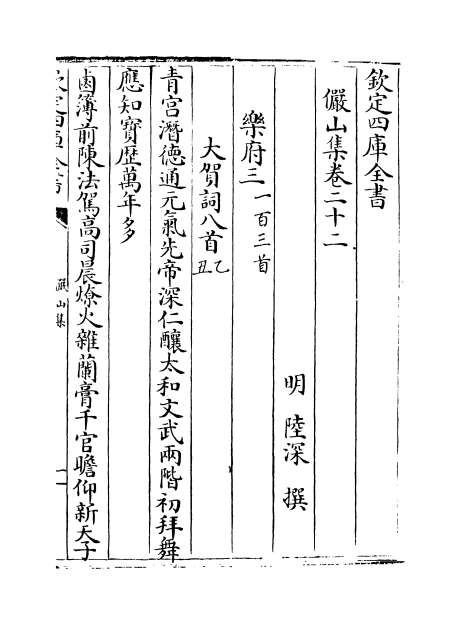 欽定四庫全書
儼山集卷二十二
明 陸深 撰
樂府三一百三首
大賀詞八首乙丑
青宮潛德通元氣先帝深仁釀太和文武兩階初拜舞
應知寶歴萬年多
鹵簿前陳法駕高司晨燎火雜蘭膏千官瞻仰新天子
欽定四庫全書
儼山集
一